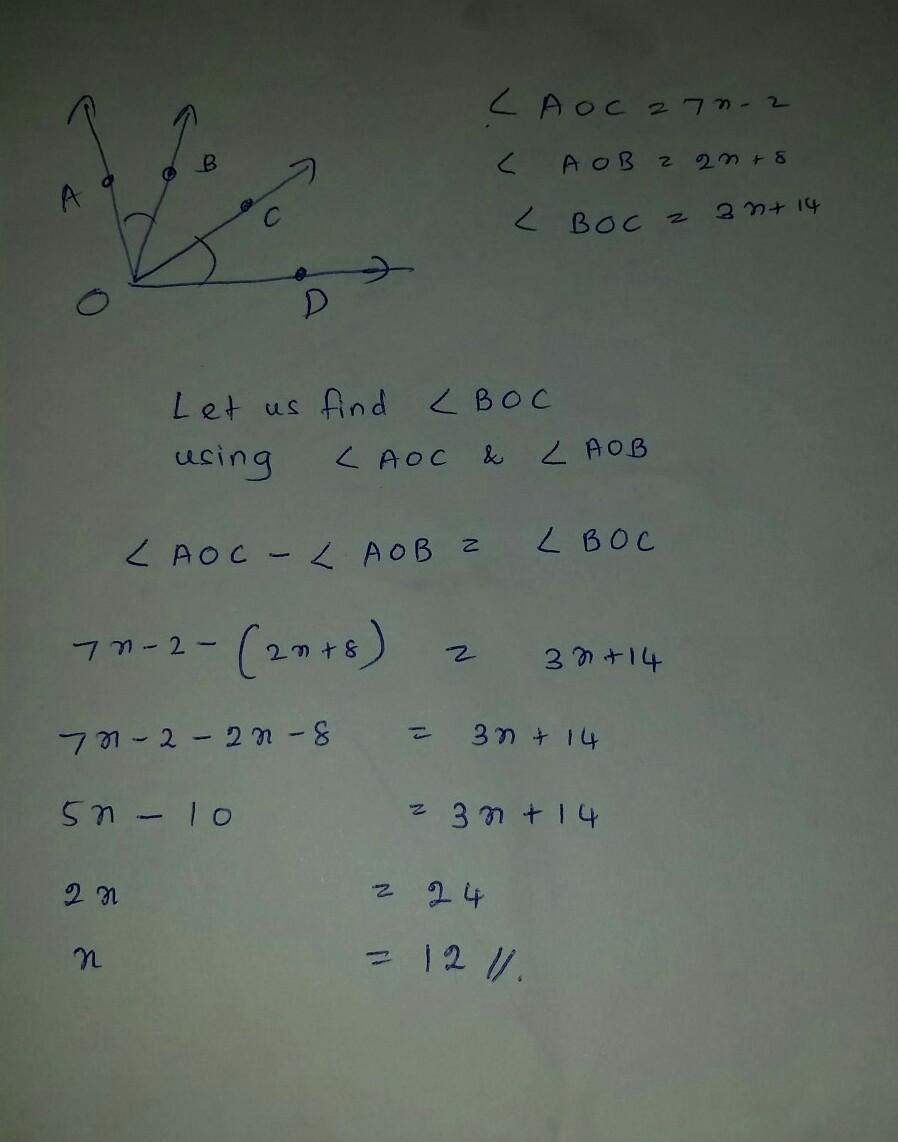 A
B
C
O
D
< AOC = 7n - 2
< AOB = 2n + 8
< BOC = 3n + 14
Let us find < BOC
using < AOC & < AOB
< AOC - < AOB = < BOC
7n - 2 - (2n + 8) = 3n + 14
7n - 2 - 2n - 8 = 3n + 14
5n - 10 = 3n + 14
2n = 24
n = 12 //.